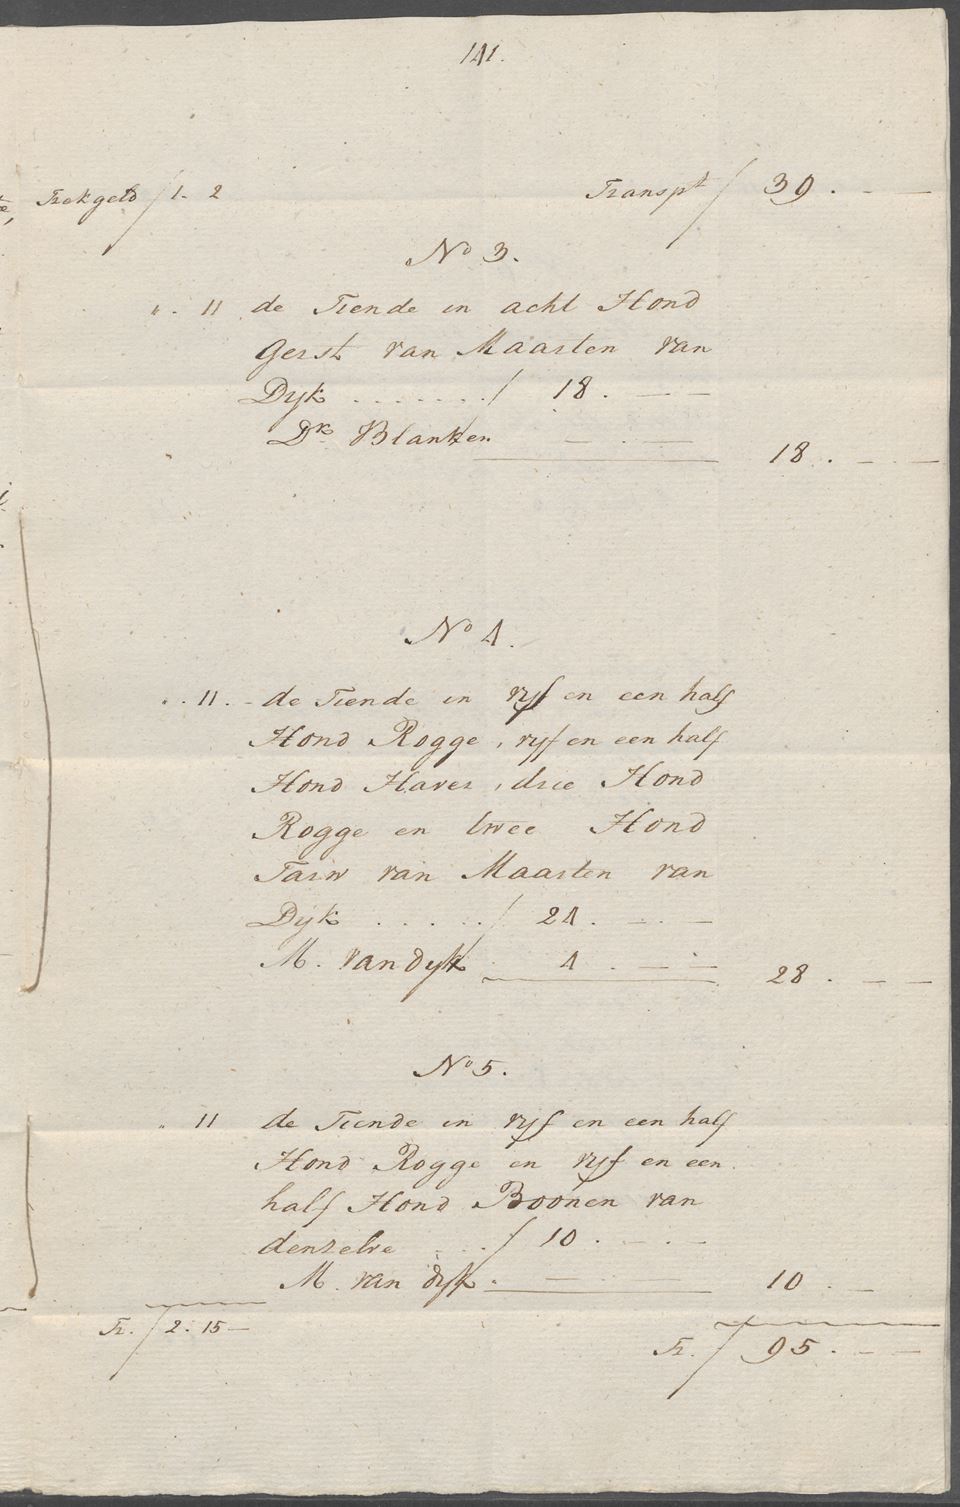 141.
Trekgeld ƒ 1. 2 Transpt ƒ 39. — —
No 3.
". 11 de Tiende in acht Hond
Gerst van Maarten van
Dyk ....... ƒ 18. — —
Dk Blanken — . — 18. — —
No 4.
". 11. - de Tiende in vyf en een half
Hond Rogge, vyf en een half
Hond Haver, drie Hond
Rogge en twee Hond
Tarw van Maarten van
Dijk ..... ƒ 24. — . —
M. van dyk . 4. — . — 28. — —
No 5.
" 11 de Tiende in vyf en een half
Hond Rogge en vyf en een
half Hond Boonen van
denzelve ... ƒ 10. — . —
M. van dyk. — — 10. —
Tr. ƒ 2. 15 —
Tr. ƒ 95. — —